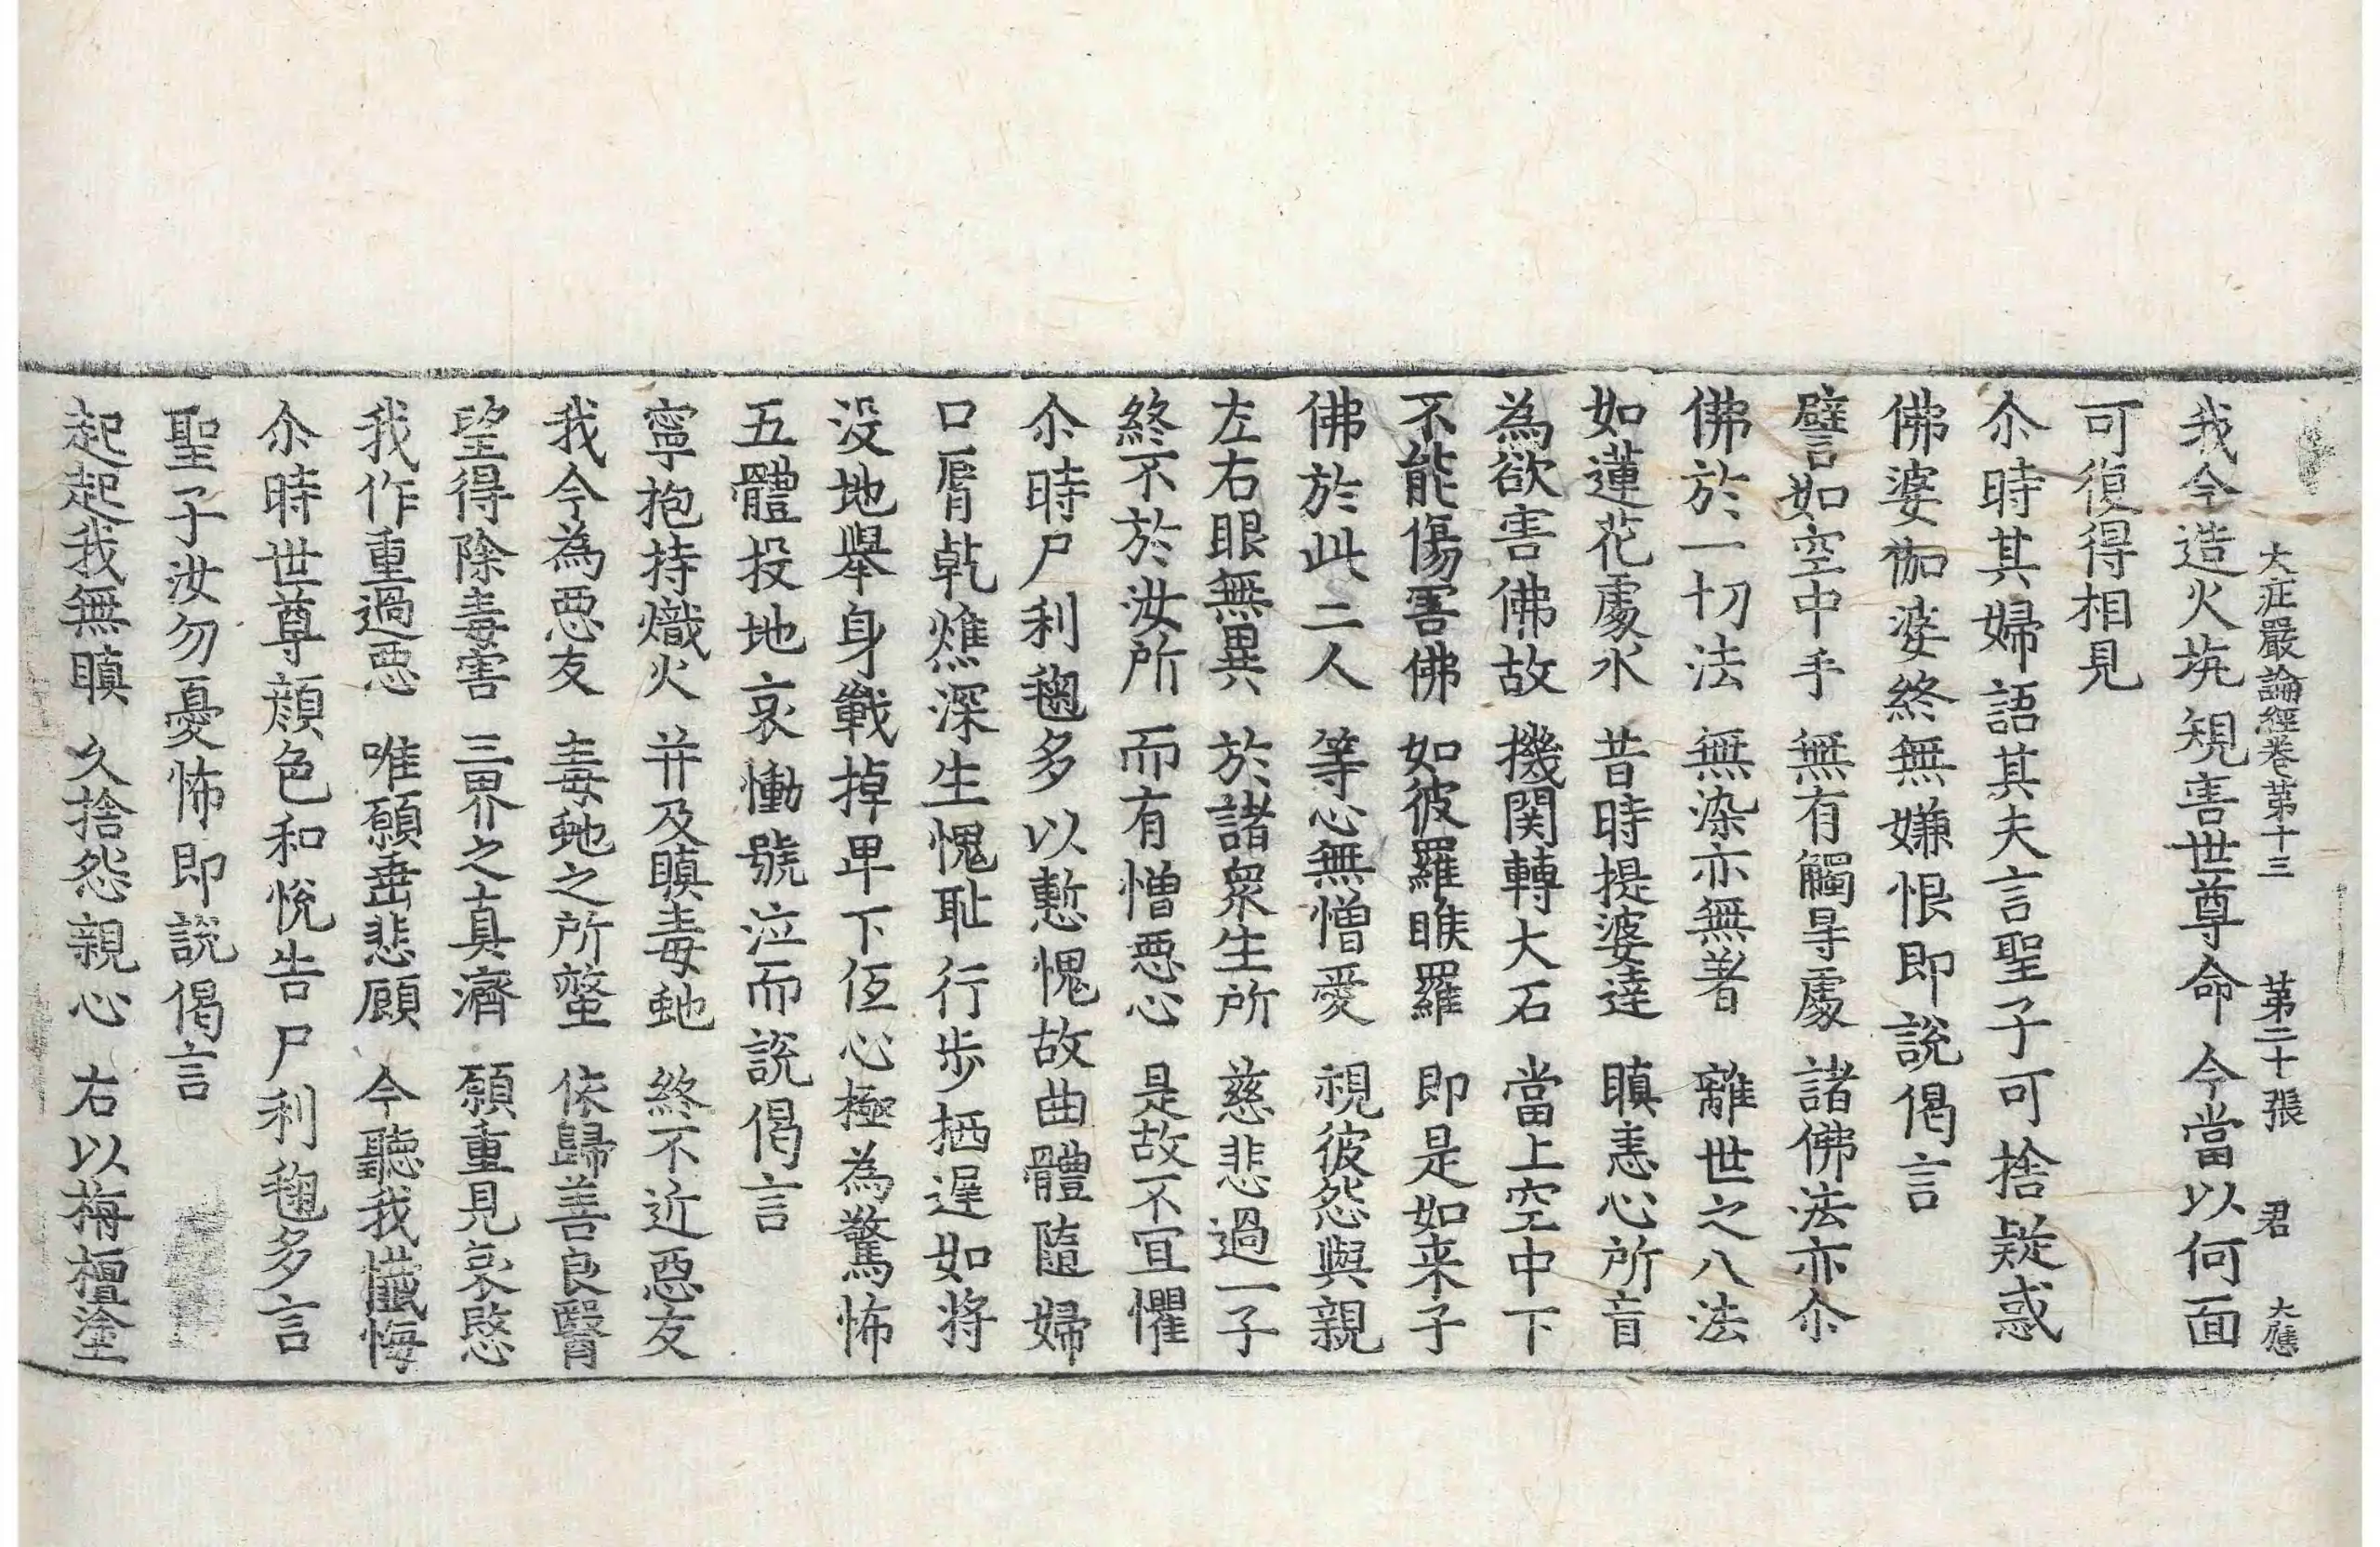 大庄嚴論經卷第十三　第二十張　君　大應
我今造火坑規害世尊命今當以何面
可復得相見
尒時其婦語其夫言聖子可捨疑惑
佛婆伽婆終無嫌恨即說偈言
譬如空中手　無有觸㝵處　諸佛法亦尒
佛於一切法　無染亦無著　離世之八法
如蓮花處水　昔時提婆達　瞋恚心所盲
為欲害佛故　機関轉大石　當上空中下
不能傷害佛　如彼羅睺羅　即是如来子
佛於此二人　等心無憎愛　視彼怨與親
左右眼無異　於諸衆生所　慈悲過一子
終不於汝所　而有憎惡心　是故不宜懼
尒時尸利毱多以慙愧故曲體隨婦
口脣乾燋深生愧耻行步栖遲如將
没地舉身戰掉卑下佷心極為驚怖
五體投地哀慟號泣而說偈言
寧抱持熾火　并及瞋毒虵　終不近惡友
我今為惡友　毒虵之所螫　依歸善良醫
望得除毒害　三界之真濟　願重見哀愍
我作重過惡　唯願垂悲顧　今聽我懺悔
尒時世尊顔色和悅告尸利毱多言
聖子汝勿憂怖即說偈言
起起我無瞋　久捨怨親心　右以栴檀塗